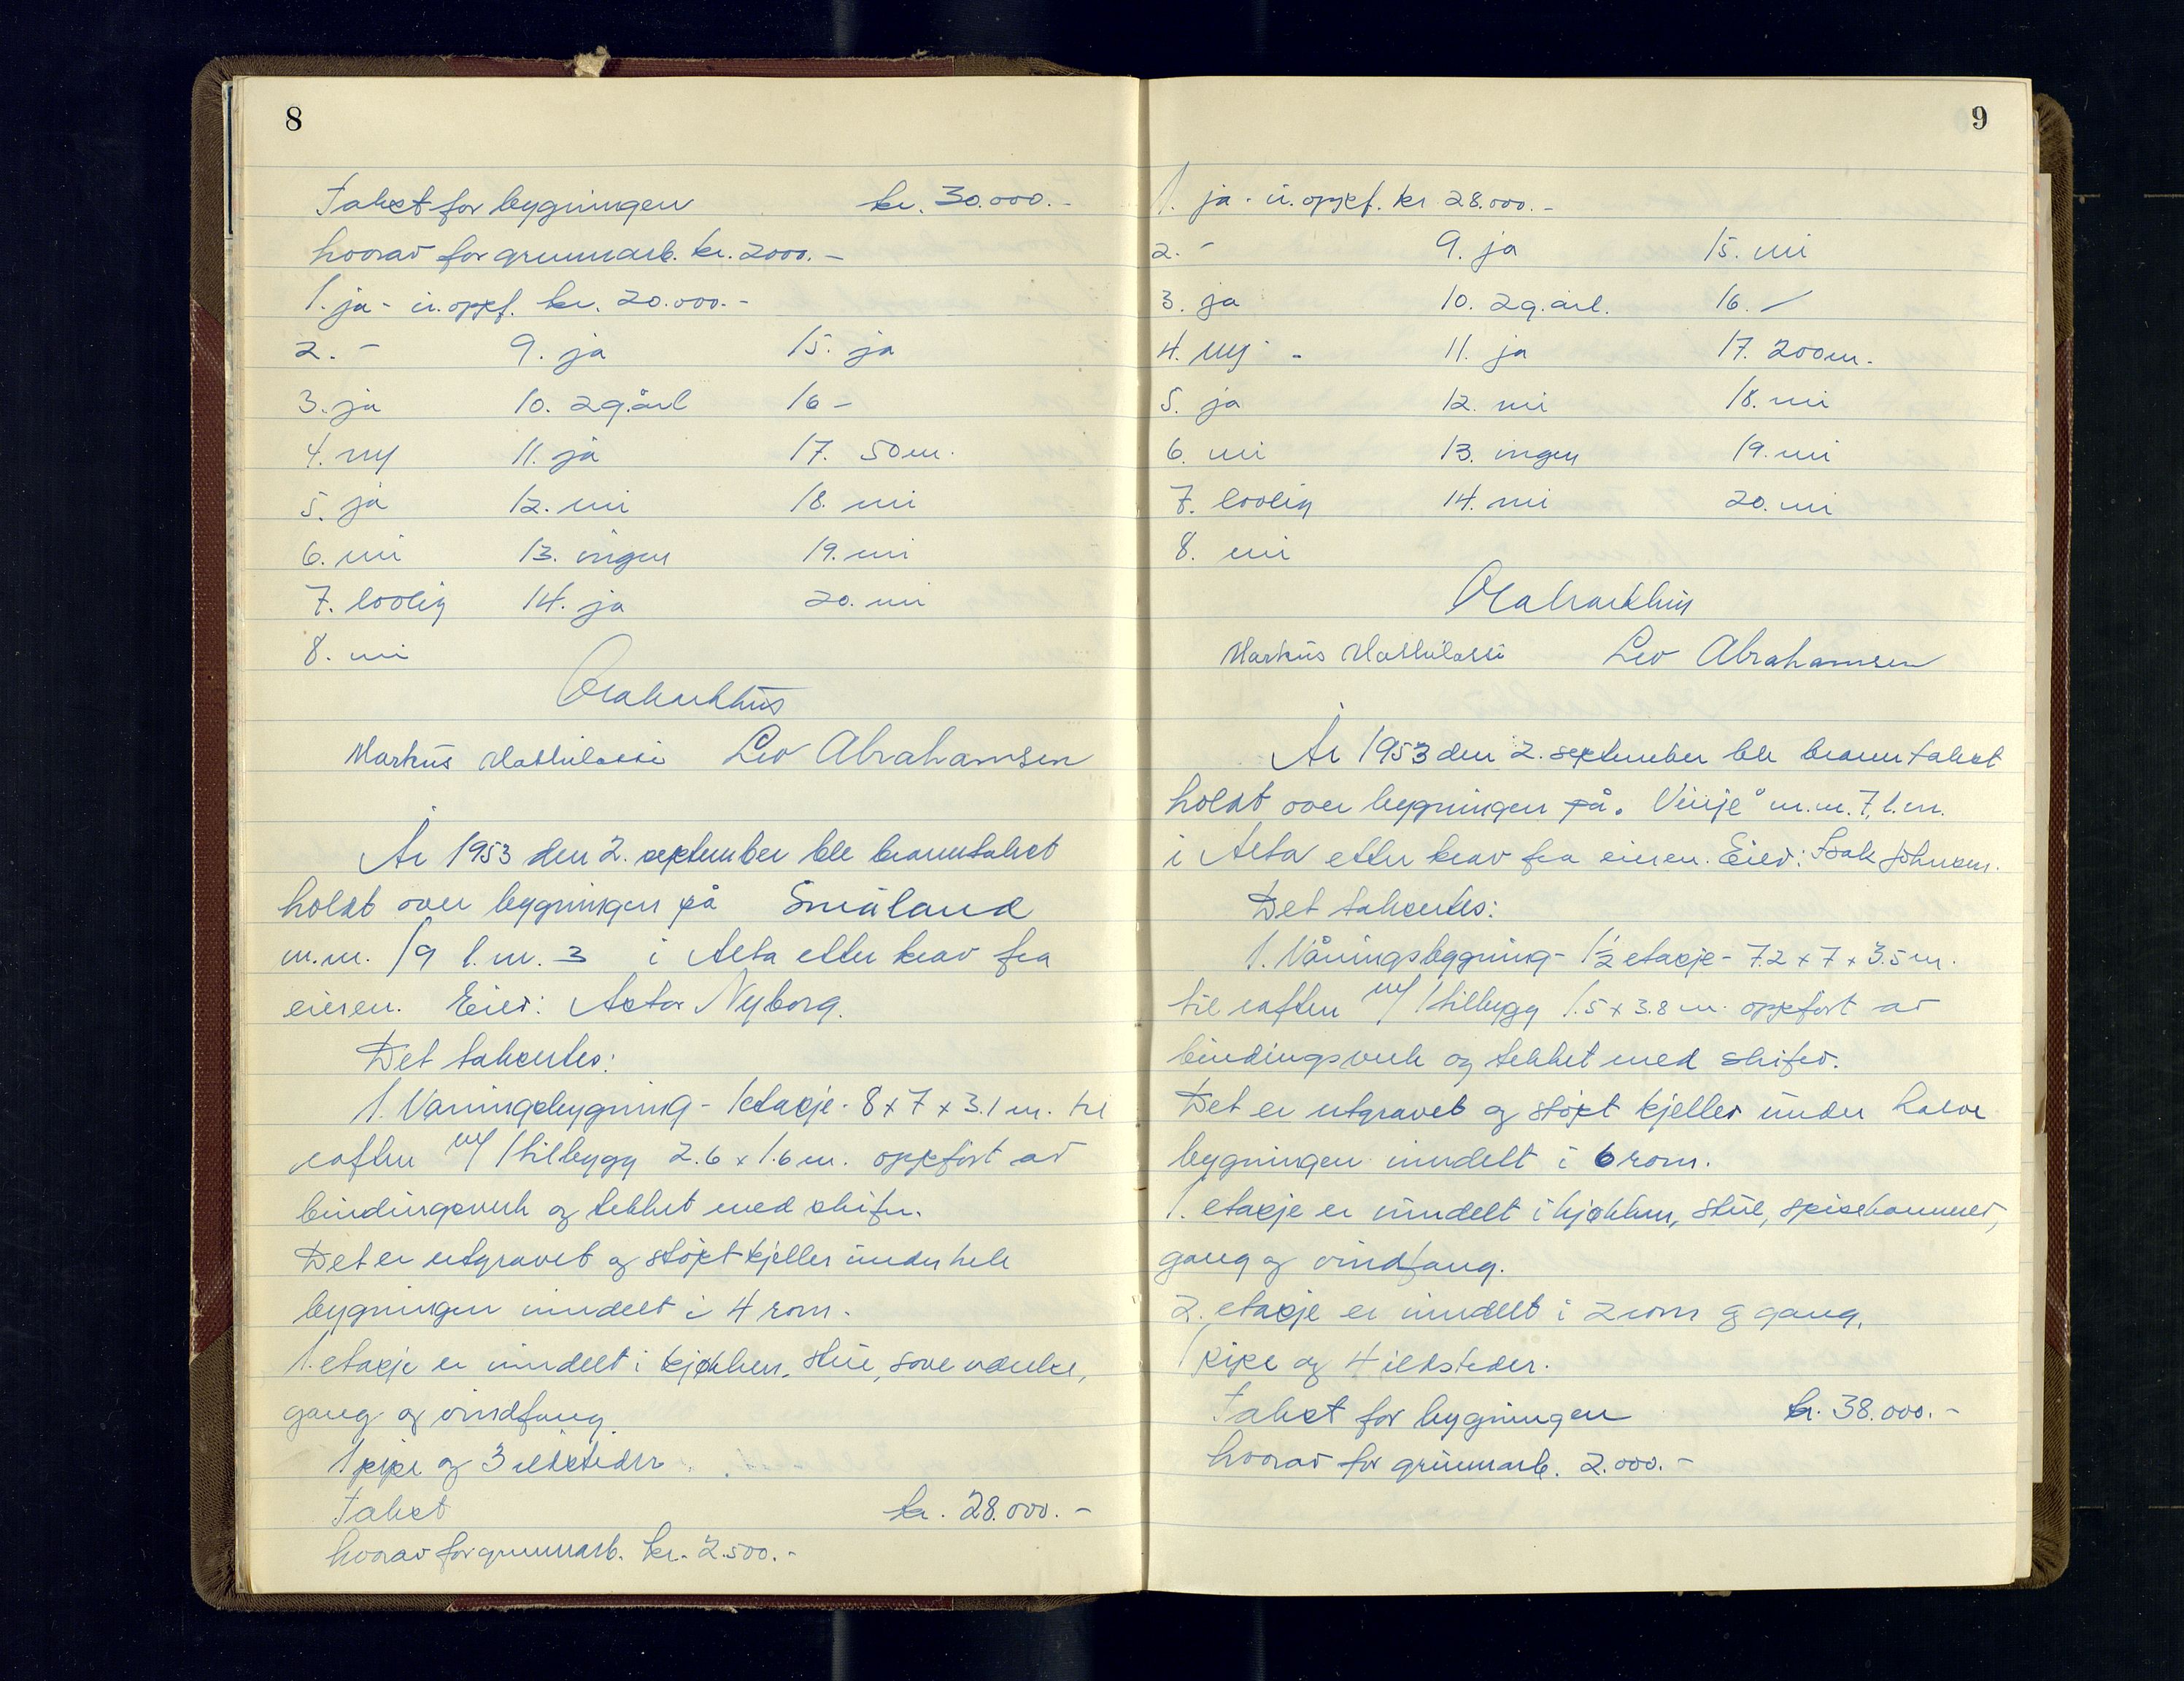 8
Takst for bygningen kr. 30.000.-
hvorav for grunnarb. kr. 2000.-
1. ja - u. oppf. kr. 20.000.-
2. - 9. ja 15. ja
3. ja 10. 2 g. årl 16 -
4. ny 11. ja 17. 50 m.
5. ja 12. nei 18. nei
6. nei 13. ingen 19. nei
7. bolig 14. ja 20. nei
8. nei
Markus Leo Abrahamsen
År 1953 den 2. september ble branntakst
holdt over bygningen på Småland
m.nr. 19 l.nr. 3 i Alta etter krav fra
eieren. Eier: Astor Nyborg.
Det taksertes:
1. Våningsbygning - 1 etasje - 8 x 7 x 3.1 m. til
raften m/ 1 tilbygg 2.6 x 1.6 m. oppført av
bindingsverk og tekket med skifer.
Det er utgravet og støpt kjeller under hele
bygningen inndelt i 4 rom.
1. etasje er inndelt i kjøkken, stue, soveværelse,
gang og vindfang.
1 pipe og 3 ildsteder
Takst kr. 28.000.-
hvorav for grunnarb. kr. 2.500.-
9
1. ja - u. oppf. kr 28.000.-
2. - 9. ja 15. nei
3. ja 10. 2 g. årl. 16. -
4. ny - 11. ja 17. 200 m.
5. ja 12. nei 18. nei
6. nei 13. ingen 19. nei
7. bolig 14. nei 20. nei
8. nei
Markus Leo Abrahamsen
År 1953 den 2. september ble branntakst
holdt over bygningen på "Vinje" m.nr. 7, l.nr.
i Alta etter krav fra eieren. Eier: Isak Johnsen.
Det takseertes:
1. Våningsbygning - 1 1/2 etasje - 7.2 x 7 x 3.5 m.
til raften m/ 1 tilbygg 1.5 x 3.8 m. oppført av
bindingsverk og tekket med skifer.
Det er utgravet og støpt kjeller under halve
bygningen inndelt i 6 rom.
1. etasje er inndelt i kjøkken, stue, spisekammer,
gang og vindfang.
2. etasje er inndelt i 2 rom og gang.
1 pipe og 4 ildsteder.
Takst for bygningen kr. 38.000.-
hvorav for grunnarb. 2.000.-